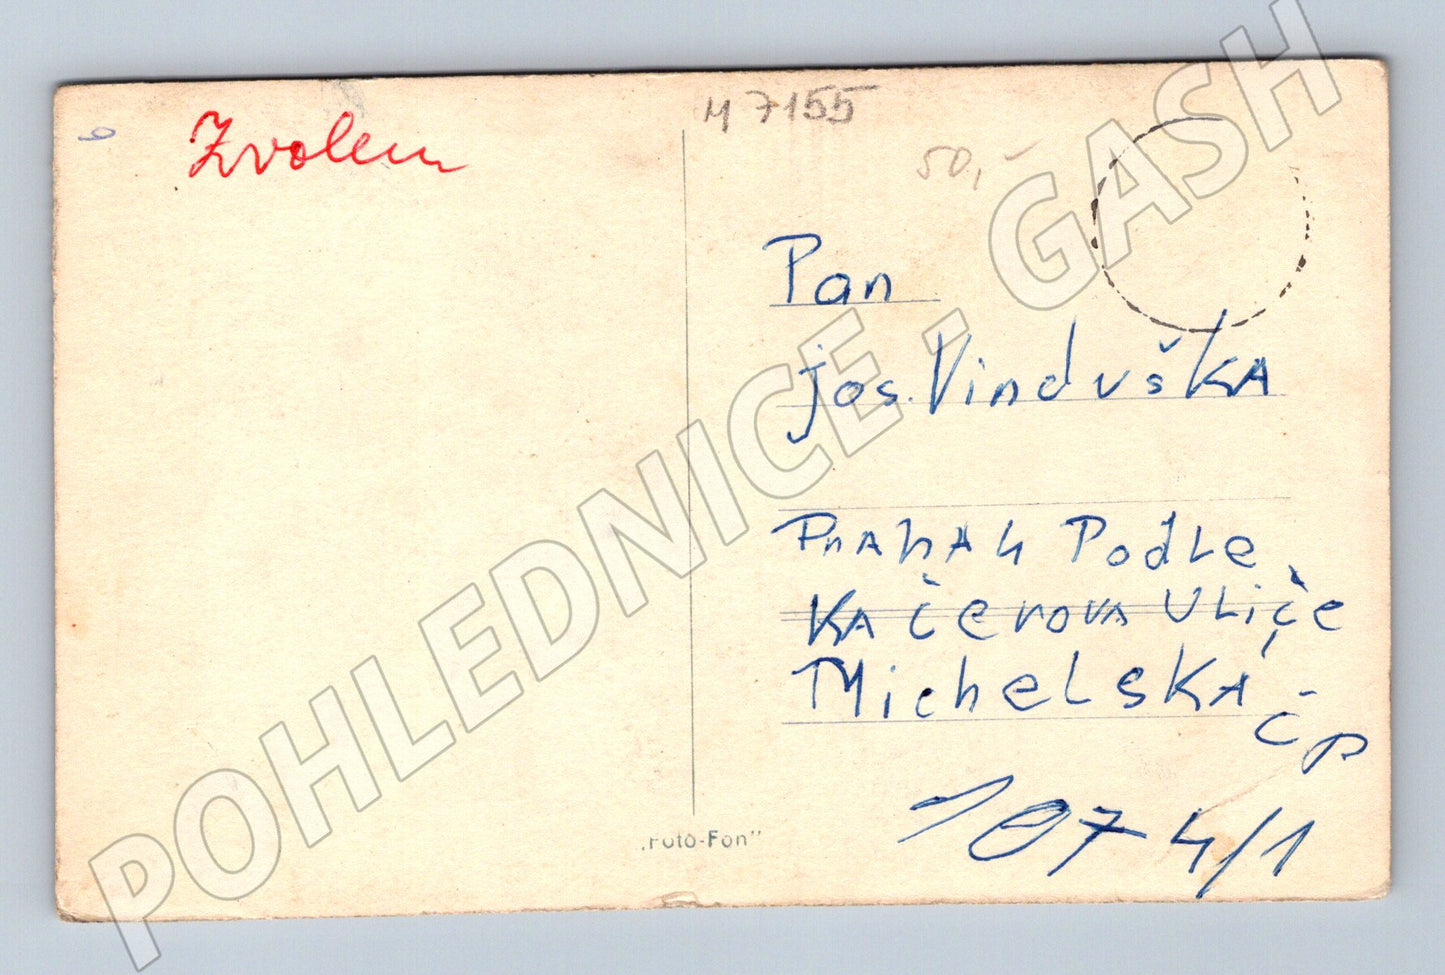 Zvolen
M 7155
50,-
Pan
Jos. Vinduška
Praha 4 Podle
Kačerova Uliče
Michelská čp
1074/1
„Foto-Fon"
POHLEDNICE - GASH